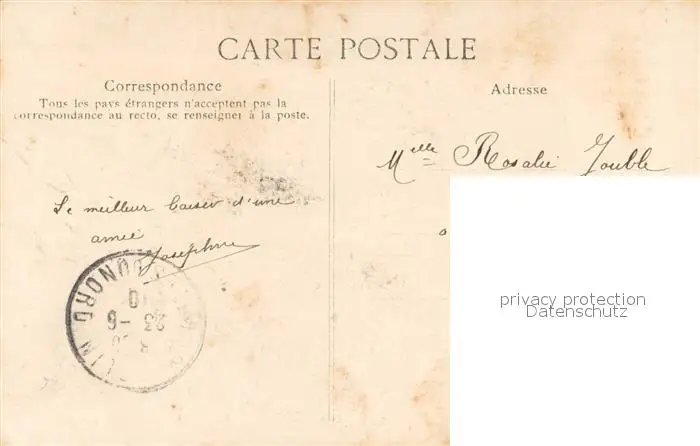 CARTE POSTALE
Correspondance
Tous les pays étrangers n'acceptent pas la
correspondance au recto, se renseigner à la poste.
Adresse
Melle Rosalie
Le meilleur baiser d'une
amie
Joséphine
DUNORD
10
23 -6
privacy protection
Datenschutz